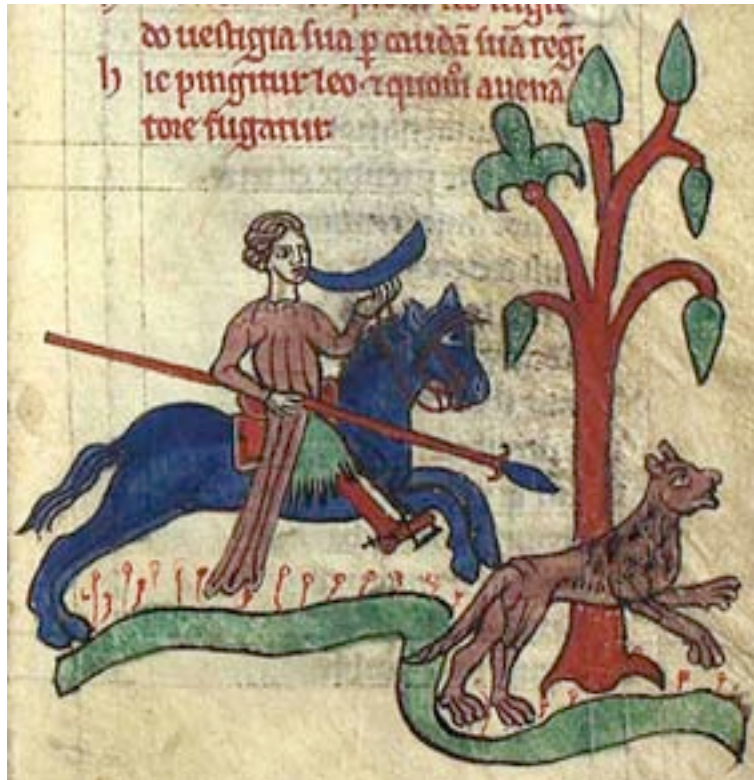 do uestigia sua p̱ caudā suā teg:
hic pingitur leo· ⁊ quom̄ a uena
tore fugatur·